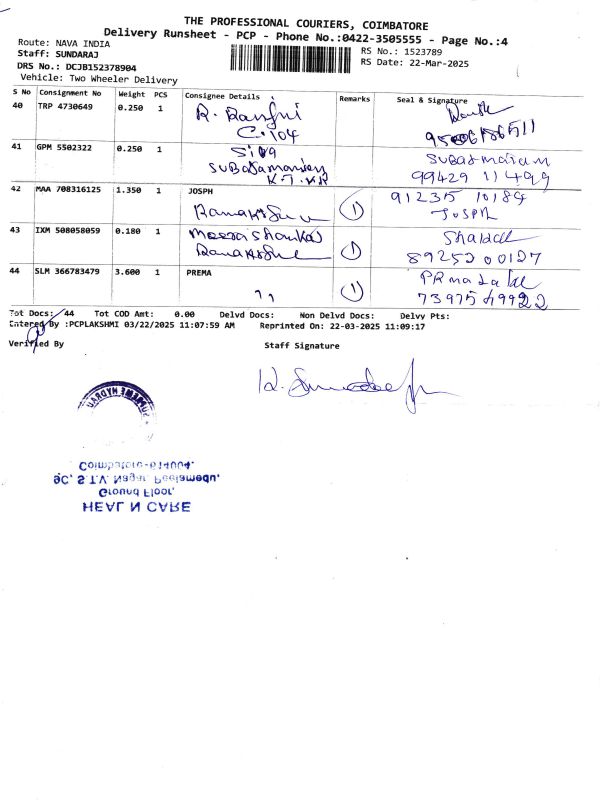 THE PROFESSIONAL COURIERS, COIMBATORE
Delivery Runsheet - PCP - Phone No.:0422-3505555 - Page No.:4
Route: NAVA INDIA
Staff: SUNDARAJ
DRS No.: DCJB152378904
Vehicle: Two Wheeler Delivery
RS No.: 1523789
RS Date: 22-Mar-2025
S No Consignment No Weight PCS Consignee Details Remarks Seal & Signature
40 TRP 4730649 0.250 1
C-104
41 GPM 5502322 0.250 1 Siva
99429 11499
42 MAA 708316125 1.350 1 JOSPH 1 91235 10184
Josph
43 IXM 508058059 0.180 1 1
89252 00127
44 SLM 366783479 3.600 1 PREMA 1
73975 49922
Tot Docs: 44 Tot COD Amt: 0.00 Delvd Docs: Non Delvd Docs: Delvy Pts:
Entered By :PCPLAKSHMI 03/22/2025 11:07:59 AM Reprinted On: 22-03-2025 11:09:17
Verified By Staff Signature
SUPREME HYDRAU
Coimbatore-614004.
9C, S.T.V. Nagar, Peelamedu,
Ground Floor,
HEAL N CARE